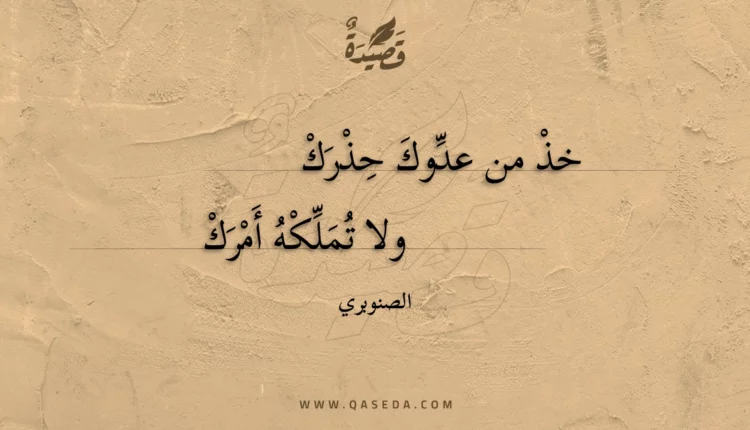 قَصِيدَةٌ
خذْ من عدِّوكَ حِذْرَكْ
ولا تُمَلِّكْهُ أَمْرَكْ
الصنوبري
WWW.QASEDA.COM